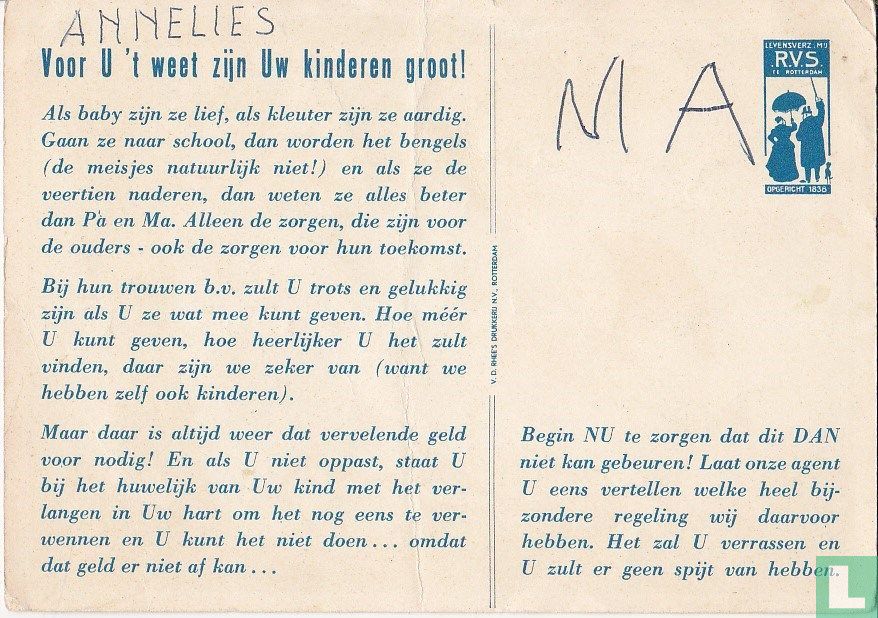 ANNELIES
Voor U 't weet zijn Uw kinderen groot!
Als baby zijn ze lief, als kleuter zijn ze aardig.
Gaan ze naar school, dan worden het bengels
(de meisjes natuurlijk niet!) en als ze de
veertien naderen, dan weten ze alles beter
dan Pa en Ma. Alleen de zorgen, die zijn voor
de ouders - ook de zorgen voor hun toekomst.
Bij hun trouwen b.v. zult U trots en gelukkig
zijn als U ze wat mee kunt geven. Hoe méér
U kunt geven, hoe heerlijker U het zult
vinden, daar zijn we zeker van (want we
hebben zelf ook kinderen).
Maar daar is altijd weer dat vervelende geld
voor nodig! En als U niet oppast, staat U
bij het huwelijk van Uw kind met het ver-
langen in Uw hart om het nog eens te ver-
wennen en U kunt het niet doen... omdat
dat geld er niet af kan...
V. D. RHEE'S DRUKKERIJ N.V., ROTTERDAM
MA
LEVENSVERZ. MIJ
R.V.S.
TE ROTTERDAM
OPGERICHT 1838
Begin NU te zorgen dat dit DAN
niet kan gebeuren! Laat onze agent
U eens vertellen welke heel bij-
zondere regeling wij daarvoor
hebben. Het zal U verrassen en
U zult er geen spijt van hebben.
L